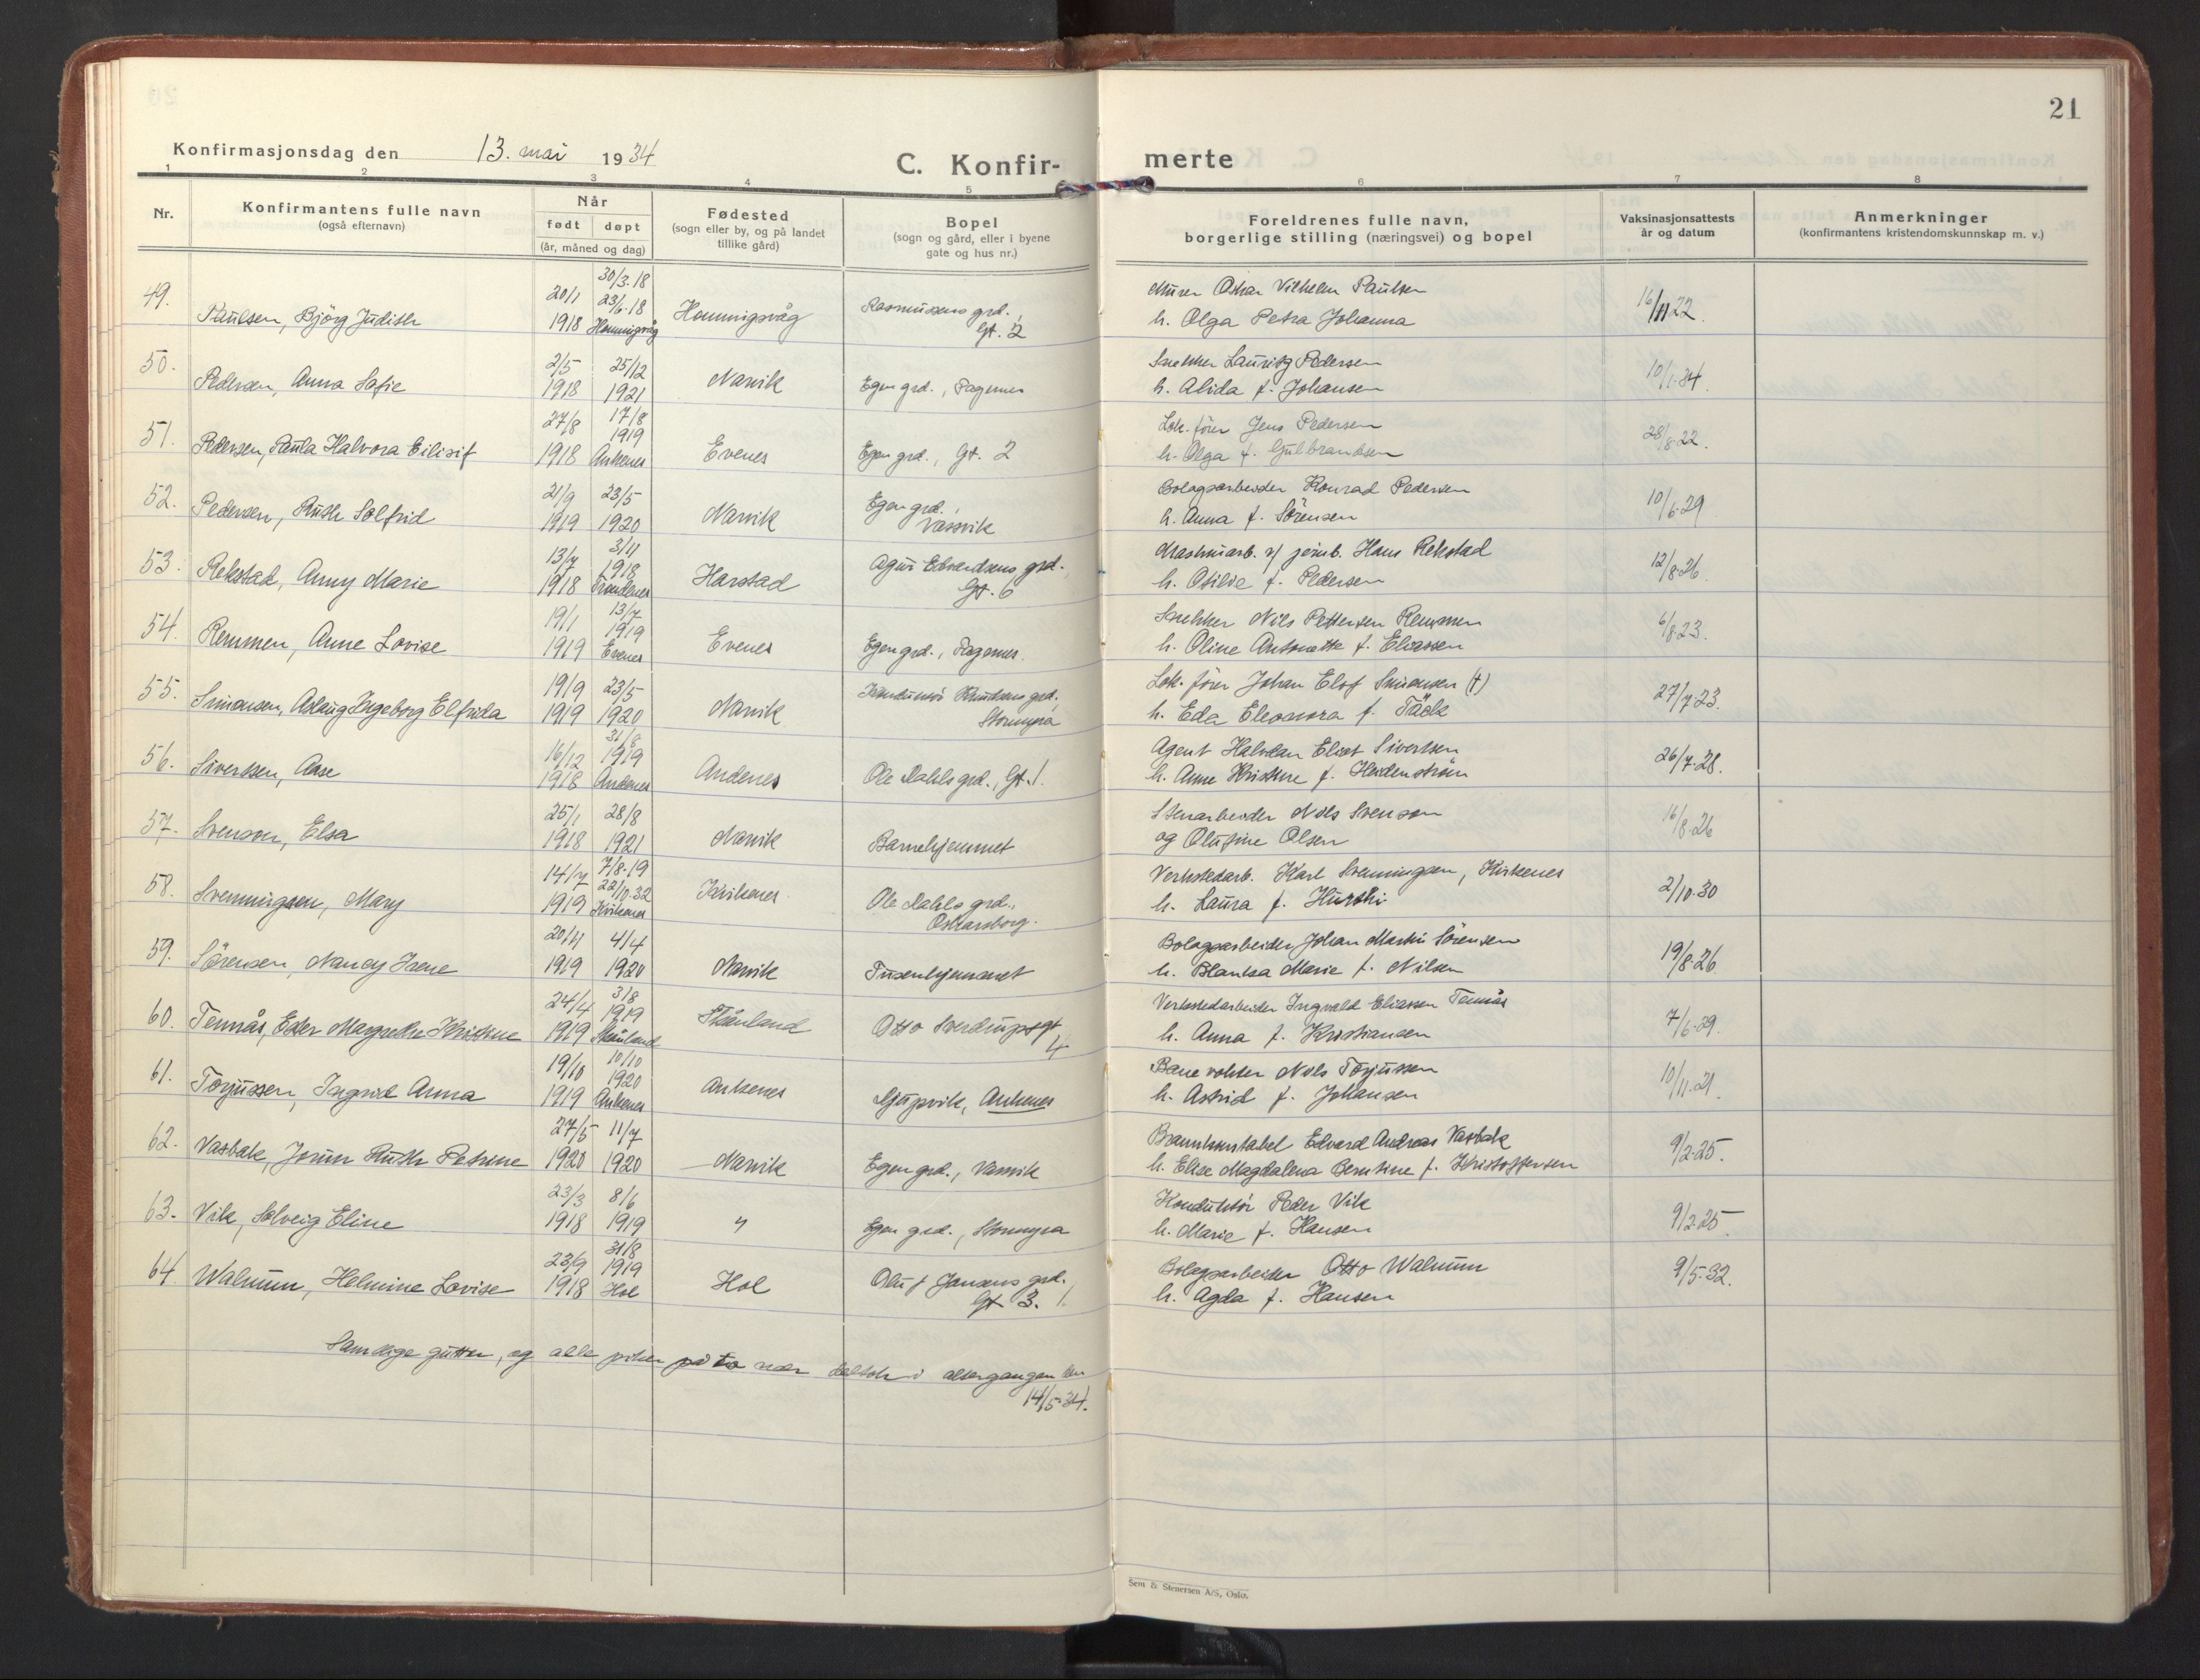 21
Konfirmasjonsdag den 13. mai 1934
C. Konfir-
merte
1 2 3 4 5 6 7 8
Nr.
Konfirmantens fulle navn
(også efternavn)
Når
født døpt
(år, måned og dag)
Fødested
(sogn eller by, og på landet
tillike gård)
Bopel
(sogn og gård, eller i byene
gate og hus nr.)
Foreldrenes fulle navn,
borgerlige stilling (næringsvei) og bopel
Vaksinasjonsattests
år og datum
Anmerkninger
(konfirmantens kristendomskunnskap m. v.)
49. Paulsen, Björg Judith
20/1 1918
30/3.18
23/6.18
Honnigsvåg
Honnigsvåg
Rasmussens grd.,
Gt. 2
Murer Oskar Vilhelm Paulsen
h. Olga Petra Johanna
16/11 22.
50. Pedersen, Anna Sofie
2/5 1918
25/12 1921
Narvik
Egen grd., Fagernes
Snekker Lauritz Pedersen
h. Alida f. Johansen
10/1.34.
51. Pedersen, Paula Halvora Eilisif
27/8 1918
17/8 1919
Ankenes
Evenes
Egen grd., Gt. 2
Lok. förer Jens Pedersen
h. Olga f. Gulbrandsen
28/8.22.
52. Pedersen, Ruth Solfrid
21/9 1919
23/5 1920
Narvik
Egen grd.,
Vassvik
Bolagsarbeider Konrad Pedersen
h. Anna f. Sörensen
10/6.29
53. Rekstad, Anny Marie
13/7 1918
3/11 1918
Trondenes
Harstad
Agnes Edvardsens grd.,
Gt. 6
Maskinarb. v/ jernb. Hans Rekstad
h. Otilie f. Pedersen
12/8.26.
54. Remmen, Anne Lovise
19/1 1919
13/7 1919
Evenes
Evenes
Egen grd., Fagernes.
Snekker Nils Pettersen Remmen
h. Oline Antonette f. Eliassen
6/8.23.
55. Simonsen, Aslaug Ingeborg Elfrida
19/9 1919
23/5 1920
Narvik
Konduktör Knutsens grd.,
Stormyra
Lok. förer Johan Elof Simonsen (†)
h. Eda Eleonora f. Täck
27/7.23.
56. Sivertsen, Aase
16/12 1918
31/8 1919
Andenes
Andenes
Ole Dahls grd., Gt. 1.
Agent Halvdan Eliot Sivertsen
h. Anne Kristine f. Heidenström
26/7.28.
57. Svenson, Elsa
25/1 1918
28/8 1921
Narvik
Barnehjemmet
Stenarbeider Nils Svenson
og Olufine Olsen
16/8.26
58. Svenningsen, Mary
14/7 1919
7/8.19
22/10.32
Kirkenes
Kirkenes
Ole Dahls grd.,
Oskarsborg.
Verkstedarb. Karl Svenningsen, Kirkenes
h. Laura f. Hurski
2/10.30
59. Sörensen, Nancy Irene
20/11 1919
4/4 1920
Narvik
Tusenhjemmet
Bolagsarbeider Johan Martin Sörensen
h. Blanksa Marie f. Nilsen
19/8.26
60. Tennås, Ester Margrethe Kristine
24/4 1919
3/8 1919
Skånland
Skånland
Otto Sverdrupsgt.
4
Verkstedarbeider Ingvald Eliassen Tennås
h. Anna f. Kristiansen
7/6.29.
61. Torjussen, Ingrid Anna
19/10 1919
10/10 1920
Ankenes
Ankenes
Grindvik, Ankenes
Banevokter Nils Torjussen
h. Astrid f. Johansen
10/11.21.
62. Vasbak, Jorun Ruth Petrine
27/5 1920
11/7 1920
Narvik
Egen grd., Vassvik
Brannkonstabel Edvard Andreas Vasbak
h. Elise Magdalena Berntine f. Kristoffersen
9/2.25.
63. Vik, Solveig Eline
23/3 1918
8/6 1919
"
Egen grd., Stormyra
Konduktör Peder Vik
h. Marie f. Hansen
9/2.25
64. Walnum, Helmine Lovise
23/9 1918
31/8 1919
Hol
Hol
Oluf Jansens grd.
Gt. 3. 1.
Bolagsarbeider Otto Walnum
h. Agda f. Hansen
9/5.32.
Samtlige gutter, og alle piker på to nær deltok i altergangen den
14/5.34.
Sem & Stenersen A/S, Oslo.